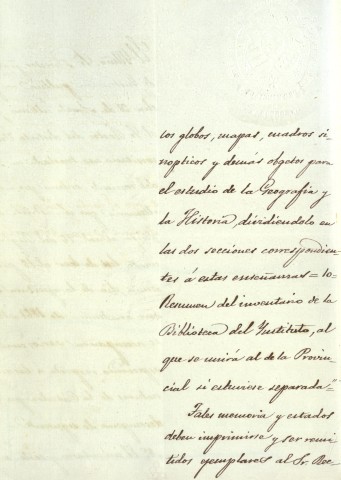 los globos, mapas, cuadros si-
nopticos y demás objetos para
el estudio de la Geografía y
la Historia, dividiendolo en
las dos secciones correspondien-
tes á estas enseñanzas = 10-
Resumen del inventario de la
Biblioteca del Instituto, al
que se unirá al de la Provin-
cial si estuviese separada"
Tales memoria y estados
deben imprimirse y ser remi-
tidos ejemplares al Sr. Rec-